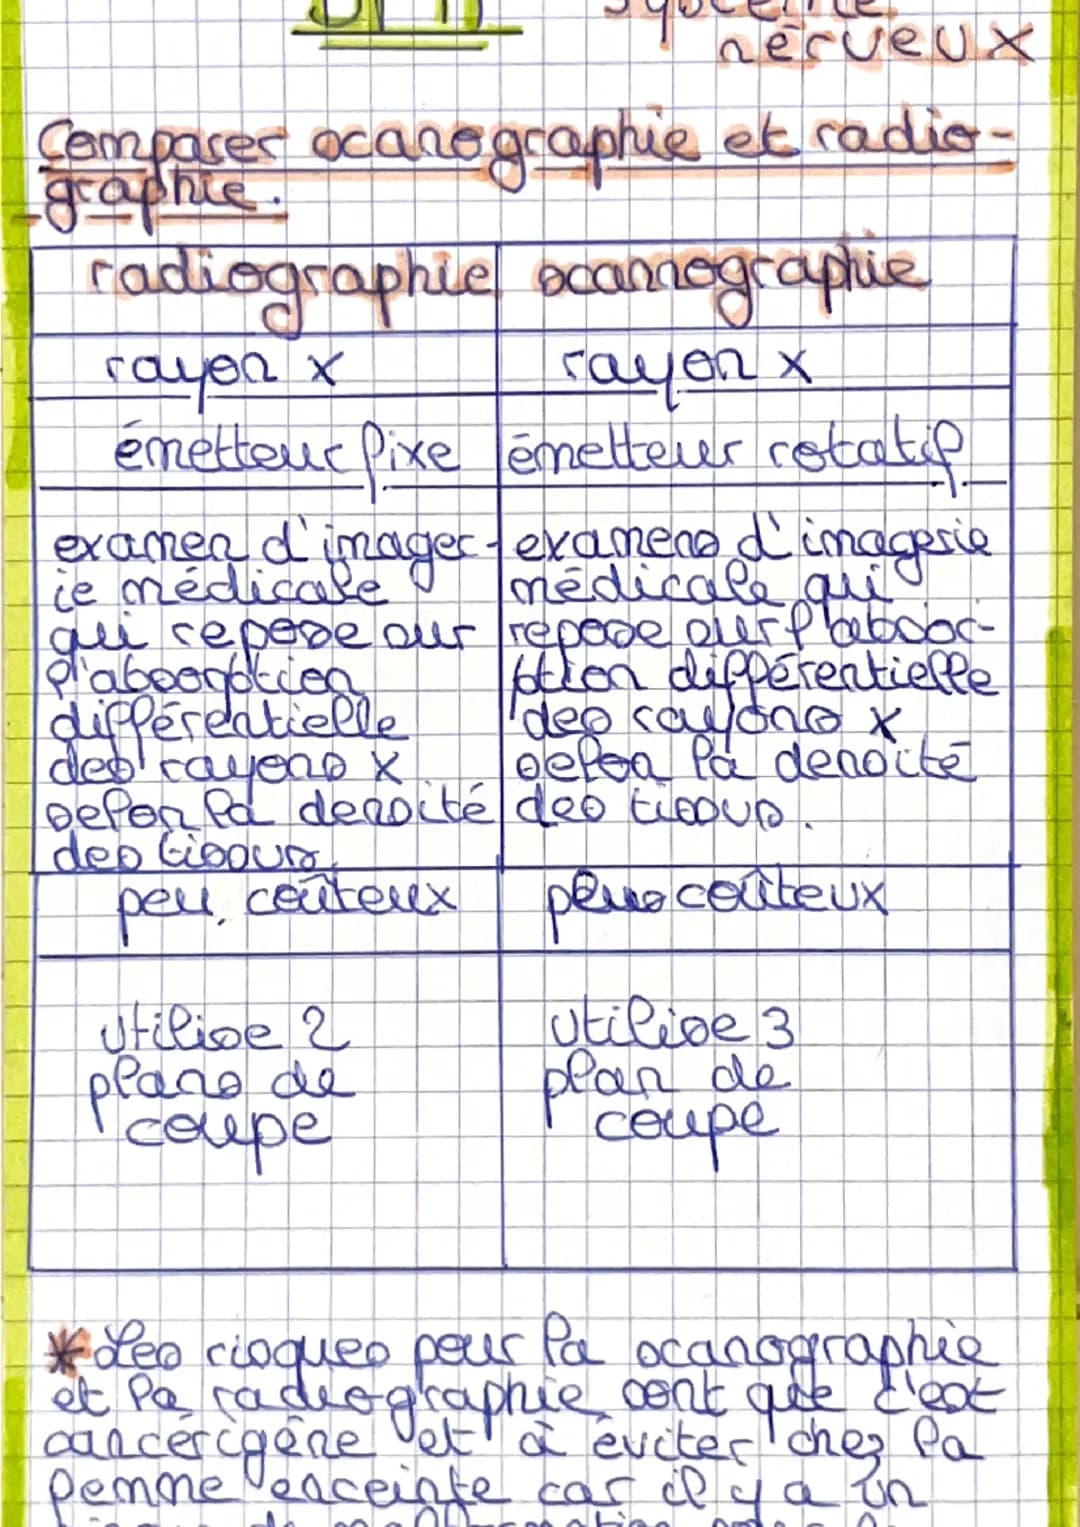 système
nerveux
Comparer scanographie et radio-
graphie.
radiographie scannographie
rayon x rayon x
émetteur fixe émetteur rotatif
examen d'imager-
ie médicale
qui repose sur
l'absorption
différentielle
des rayons X
selon la densité
des tissus.
examens d'imagerie
médicale qui
repose sur l'absor-
ption différentielle
des rayons X
selon la densité
des tissus.
peu coûteux plus coûteux
utilise 2
plans de
coupe
utilise 3
plan de
coupe
* Les risques pour la scanographie
et la radiographie sont que c'est
cancérigène et à éviter chez la
femme enceinte car il y a un